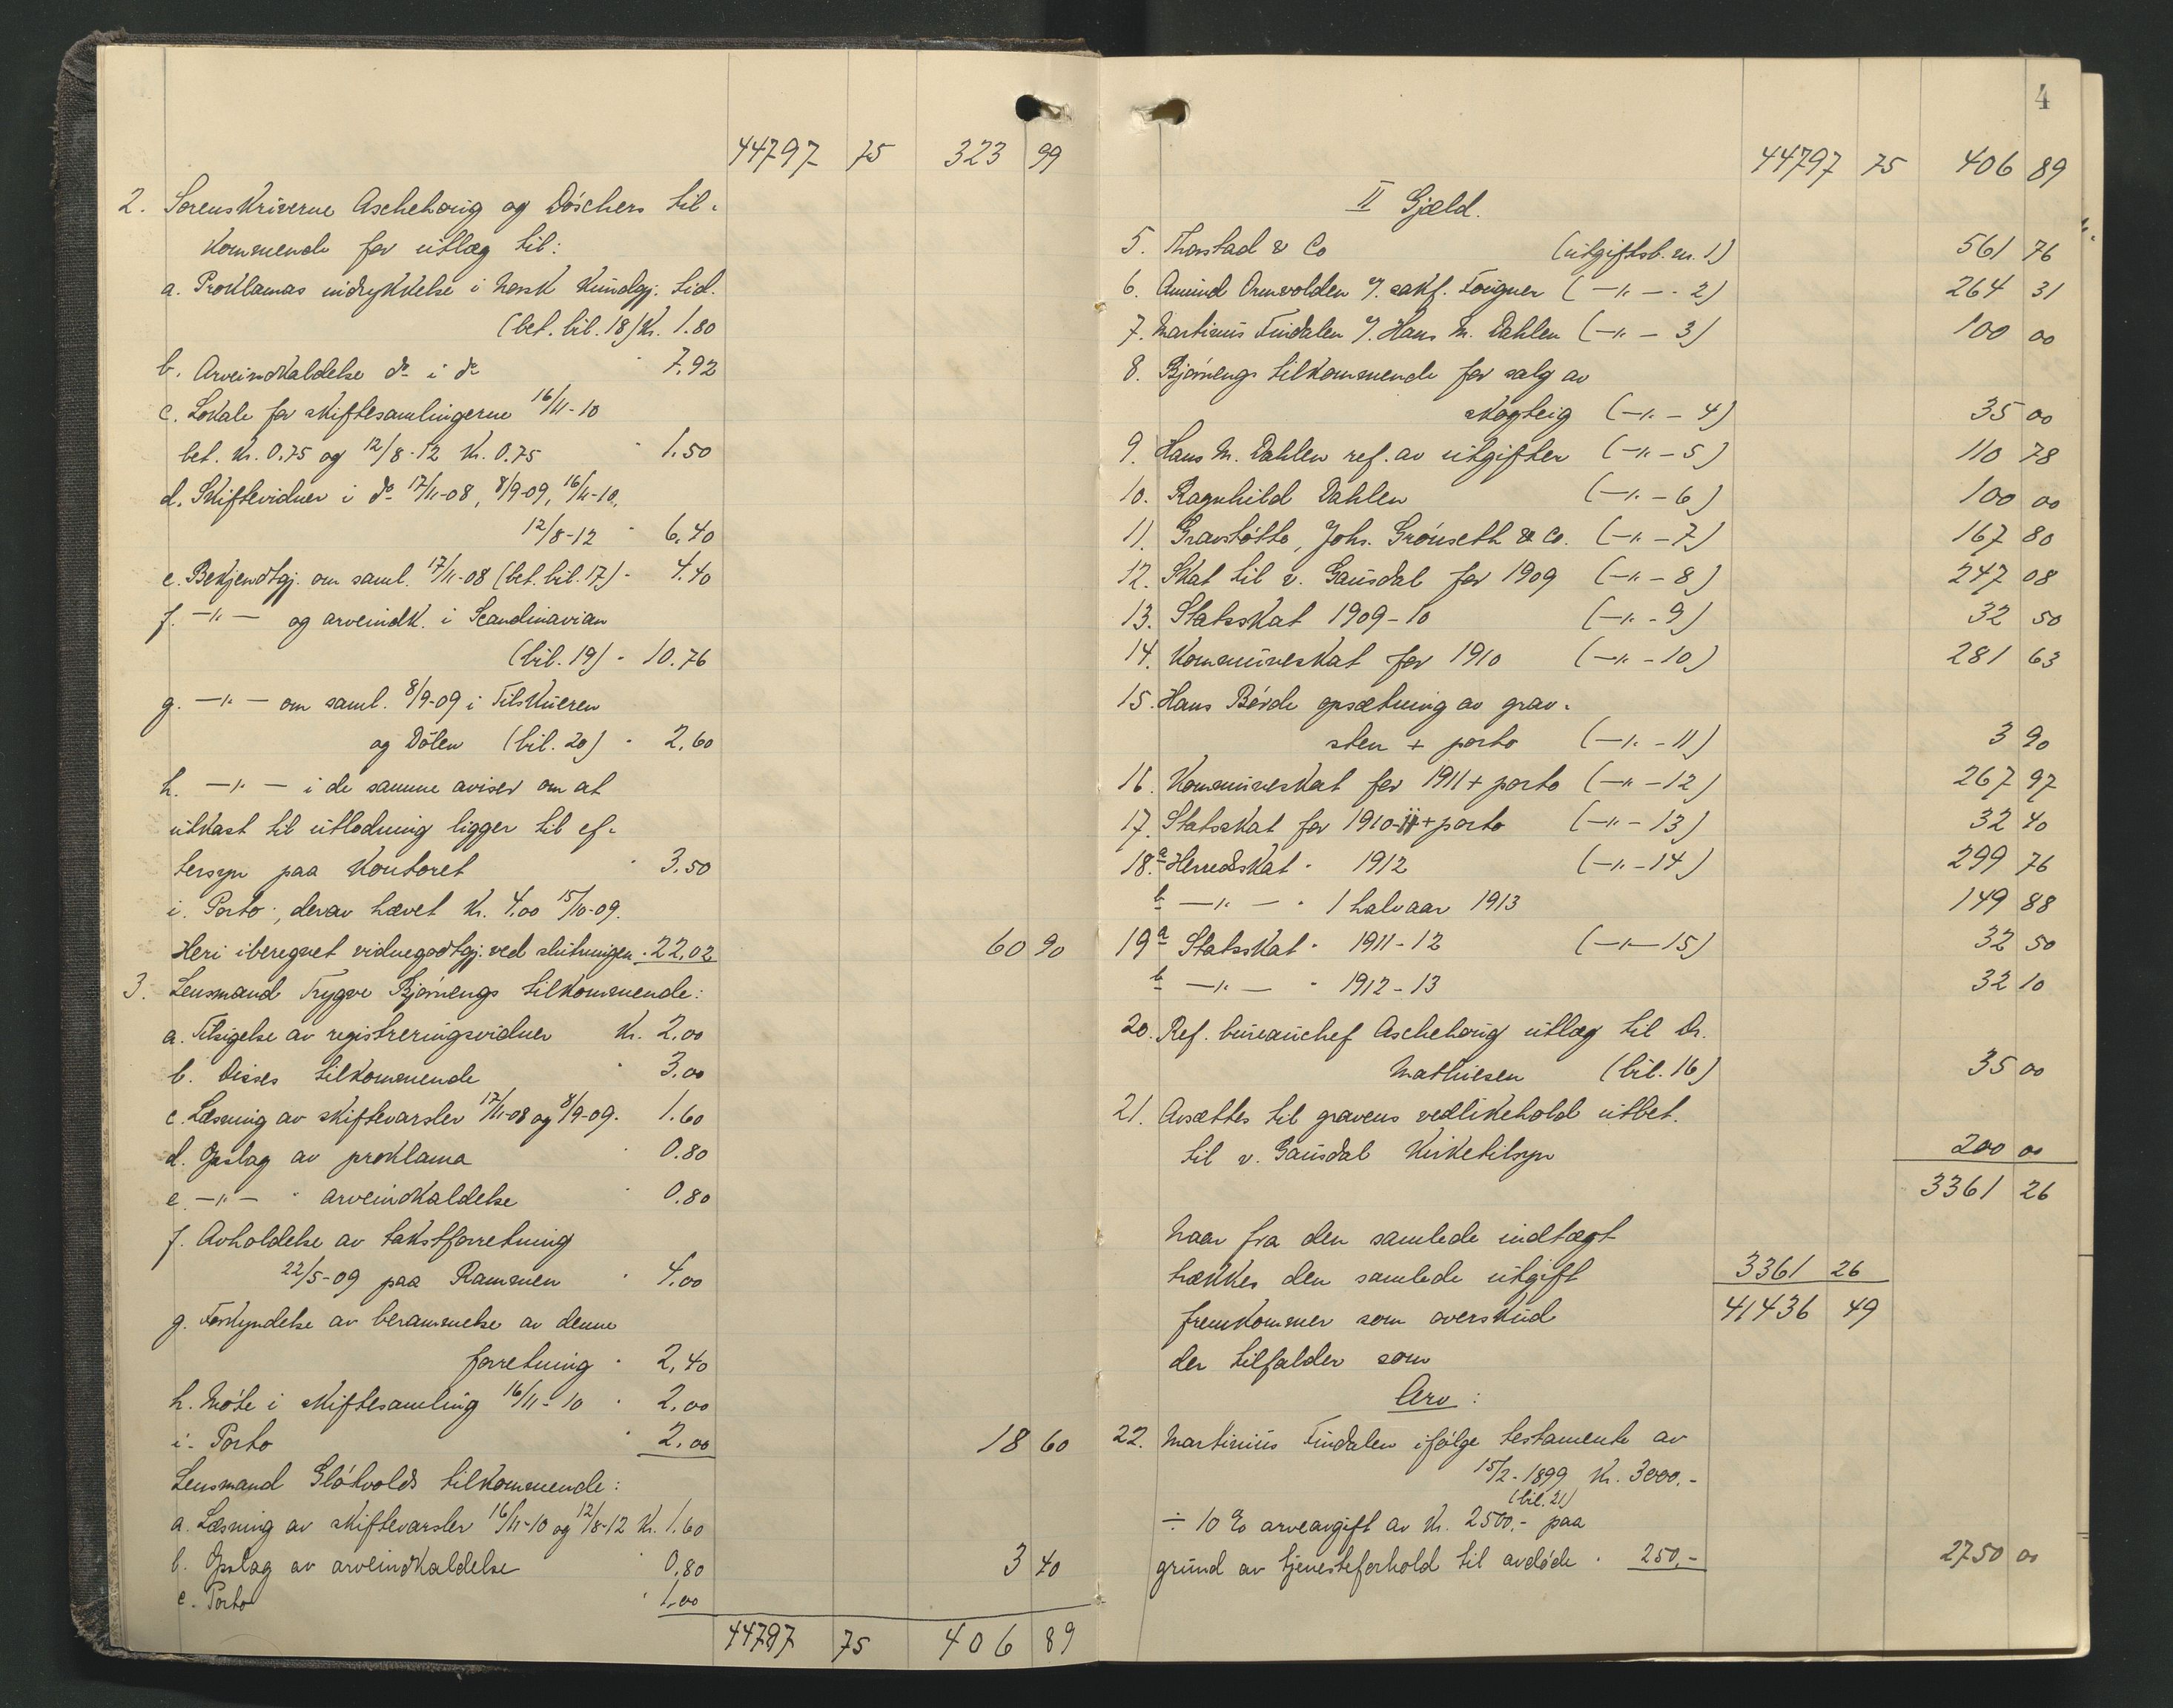 44797 75 323 99
2. Sorenskriverne Aschehoug og Döschers til-
kommende for utlæg til:
a. Proklamas indrykkelse i Norsk Kundgj. tid.
(bet. bil. 18) Kr. 1.80
b. Arveindkaldelse do i do " 7.92
c. Lokale for skiftesamlingerne 16/11-10
bet. Kr. 0.75 og 12/8-12 Kr. 0.75 " 1.50
d. Skiftevidner i do 17/11-08, 8/9-09, 16/11-10,
12/8-12 " 6.40
e. Bekjendtgj. om saml. 17/11-08 (bet. bil. 17) " 4.40
f. -"- og arveindk. i Scandinavian
(bil. 19) " 10.76
g. -"- om saml. 8/9-09 i Tilskueren
og Dölen (bil. 20) " 2.60
h. -"- i de samme aviser om at
utkast til utlodning ligger til ef-
tersyn paa kontoret " 3.50
i. Porto; derav hævet Kr. 4.00 15/10-09.
Heri iberegnet vidnegodtgj. ved slutningen " 22.02 60 90
3. Lensmand Trygve Bjørnengs tilkommende:
a. Tilsigelse av registreringsvidner Kr. 2.00
b. Disses tilkommende " 3.00
c. Læsning av skiftevarsler 17/11-08 og 8/9-09. 1.60
d. Opslag av proklama " 0.80
e. -"- " arveindkaldelse " 0.80
f. Avholdelse av takstforretning
22/5-09 paa Rammen " 4.00
g. Forkyndelse av berammelse av denne
forretning " 2.40
h. Möte i skiftesamling 16/11-10 " 2.00
i. Porto " 2.00 18 60
Lensmand Glötvolds tilkommende:
a. Læsning av skiftevarsler 16/11-10 og 12/8-12 Kr. 1.60
b. Opslag av arveindkaldelse " 0.80 3 40
c. Porto " 1.00
44797 75 406 89
4
44797 75 406 89
II Gjæld.
5. Thorstad & Co (utgiftsb. nr. 1) 561 76
6. Amund Ormvolden v/ sakf. Foigner (-"- - 2) 264 31
7. Martinus Findalen v/ Hans M. Dahlen (-"- 3) 100 00
8. Bjørnengs tilkommende for salg av
skogteig (-"- 4) 35 00
9. Hans M. Dahlen ref. av utgifter (-"- 5) 110 78
10. Ragnhild Dahlen (-"- 6) 100 00
11. Gravstötte, Johs. Grönseth & Co. (-"- 7) 167 80
12. Skat til v. Gausdal for 1909 (-"- 8) 247 08
13. Statsskat 1909-10 (-"- 9) 32 50
14. Kommuneskat for 1910 (-"- 10) 281 63
15. Hans Börde opsætning av grav-
sten + porto (-"- 11) 3 90
16. Kommuneskat for 1911 + porto (-"- 12) 267 97
17. Statsskat for 1910-11 + porto (-"- 13) 32 40
18. a Herredsskat " 1912 (-"- 14) 299 76
b -"- " 1 halvaar 1913 149 88
19 a Statsskat " 1911-12 (-"- 15) 32 50
b -"- " 1912-13 32 10
20. Ref. bureauchef Aschehoug utlæg til Dr.
Mathiesen (bil. 16) 35 00
21. Avsættes til gravens vedlikehold utbet.
til v. Gausdal kirketilsyn 200 00
3361 26
Naar fra den samlede indtægt
trækkes den samlede utgift 3361 26
fremkommer som overskud 41436 49
der tilfalder som
Arv:
22. Martinius Findalen ifölge testamente av
15/2-1899 Kr. 3000.-
(bil. 21)
÷ 10 % arveavgift av Kr. 2500.- paa
grund av tjenesteforhold til avdöde " 250.- 2750 00